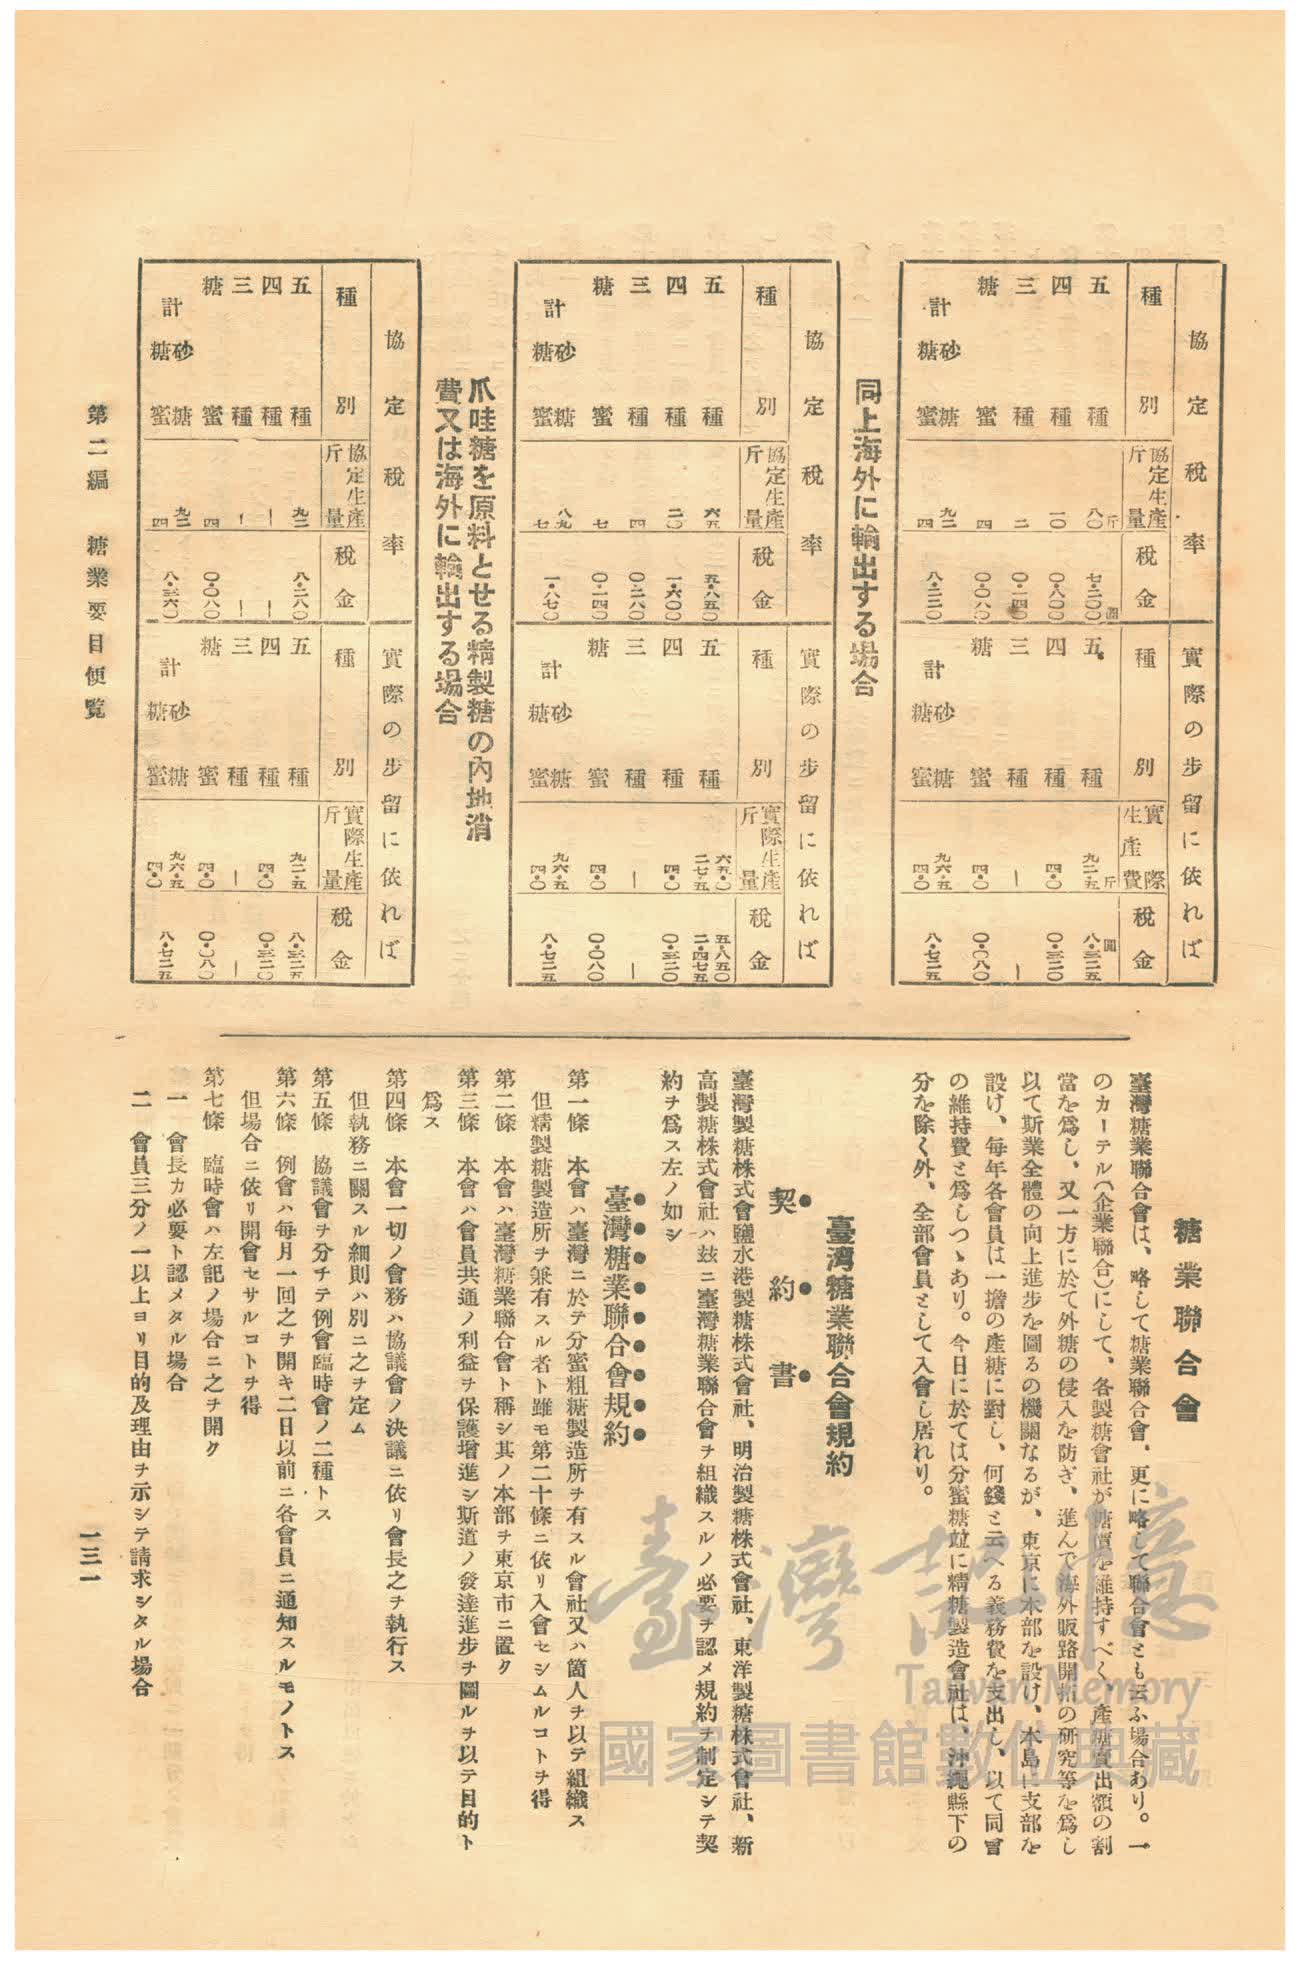 協定稅率
種別
協定生產量斤
稅金
五種 八〇斤 七・二〇〇圓
四種 一〇 〇・八〇〇
三種 二 〇・一四〇
糖蜜 四 〇・〇八〇
計 砂糖 九二 糖蜜 四 八・二二〇
實際の步留に依れば
種別
實際生產費
稅金
五種 九二・五斤 八・三二五圓
四種 四・〇 〇・三二〇
三種 ー ー
糖蜜 四・〇 〇・〇八〇
計 砂糖 九六・五 糖蜜 四・〇 八・七二五
同上海外に輸出する場合
協定稅率
種別
協定生產量斤
稅金
五種 六五 五・八五〇
四種 二〇 一・六〇〇
三種 四 〇・二八〇
糖蜜 七 〇・一四〇
計 砂糖 八九 糖蜜 七 一・八七〇
實際の步留に依れば
種別
實際生產量斤
稅金
五種 六五・〇 二七・五 五・八五〇 二・四七五
四種 四・〇 〇・三二〇
三種 ー ー
糖蜜 四・〇 〇・〇八〇
計 砂糖 九六・五 糖蜜 四・〇 八・七二五
爪哇糖を原料とせる精製糖の內地消
費又は海外に輸出する場合
協定稅率
種別
協定生產量斤
稅金
五種 九二 八・二八〇
四種 ー ー
三種 ー ー
糖蜜 四 〇・〇八〇
計 砂糖 九二 糖蜜 四 八・三六〇
實際の步留に依れば
種別
實際生產量斤
稅金
五種 九二・五 八・三二五
四種 四・〇 〇・三二〇
三種 ー ー
糖蜜 四・〇 〇・〇八〇
計 砂糖 九六・五 糖蜜 四・〇 八・七二五
糖業聯合會
臺灣糖業聯合會は、略して糖業聯合會、更に略して聯合會とも云ふ場合あり。一
のカーテル(企業聯合)にして、各製糖會社が糖價を維持すべく、產糖賣出額の割
當を爲し、又一方に於て外糖の侵入を防ぎ、進んで海外販路開拓の研究等を爲し
以て斯業全體の向上進步を圖るの機關なるが、東京に本部を設け、本島に支部を
設け、每年各會員は一擔の產糖に對し、何錢と云へる義務費を支出し、以て同會
の維持費と爲しつゝあり。今日に於ては分蜜糖竝に精糖製造會社は、沖繩縣下の
分を除く外、全部會員として入會し居れり。
臺灣糖業聯合會規約
契約書
臺灣製糖株式會社、鹽水港製糖株式會社、明治製糖株式會社、東洋製糖株式會社、新
高製糖株式會社ハ玆ニ臺灣糖業聯合會ヲ組織スルノ必要ヲ認メ規約ヲ制定シテ契
約ヲ爲ス左ノ如シ
臺灣糖業聯合會規約
第一條 本會ハ臺灣ニ於テ分蜜粗糖製造所ヲ有スル會社又ハ箇人ヲ以テ組織ス
但精製糖製造所ヲ兼有スル者ト雖モ第二十條ニ依リ入會セシムルコトヲ得
第二條 本會ハ臺灣糖業聯合會ト稱シ其ノ本部ヲ東京市ニ置ク
第三條 本會ハ會員共通ノ利益ヲ保護增進シ斯道ノ發達進步ヲ圖ルヲ以テ目的ト
爲ス
第四條 本會一切ノ會務ハ協議會ノ決議ニ依リ會長之ヲ執行ス
但執務ニ關スル細則ハ別ニ之ヲ定ム
第五條 協議會ヲ分チテ例會臨時會ノ二種トス
第六條 例會ハ每月一回之ヲ開キ二日以前ニ各會員ニ通知スルモノトス
但場合ニ依リ開會セサルコトヲ得
第七條 臨時會ハ左記ノ場合ニ之ヲ開ク
一 會長カ必要ト認メタル場合
二 會員三分ノ一以上ヨリ目的及理由ヲ示シテ請求シタル場合
第二編 糖業要目便覽
一三一
臺灣記憶
Taiwan Memory
國家圖書館數位典藏